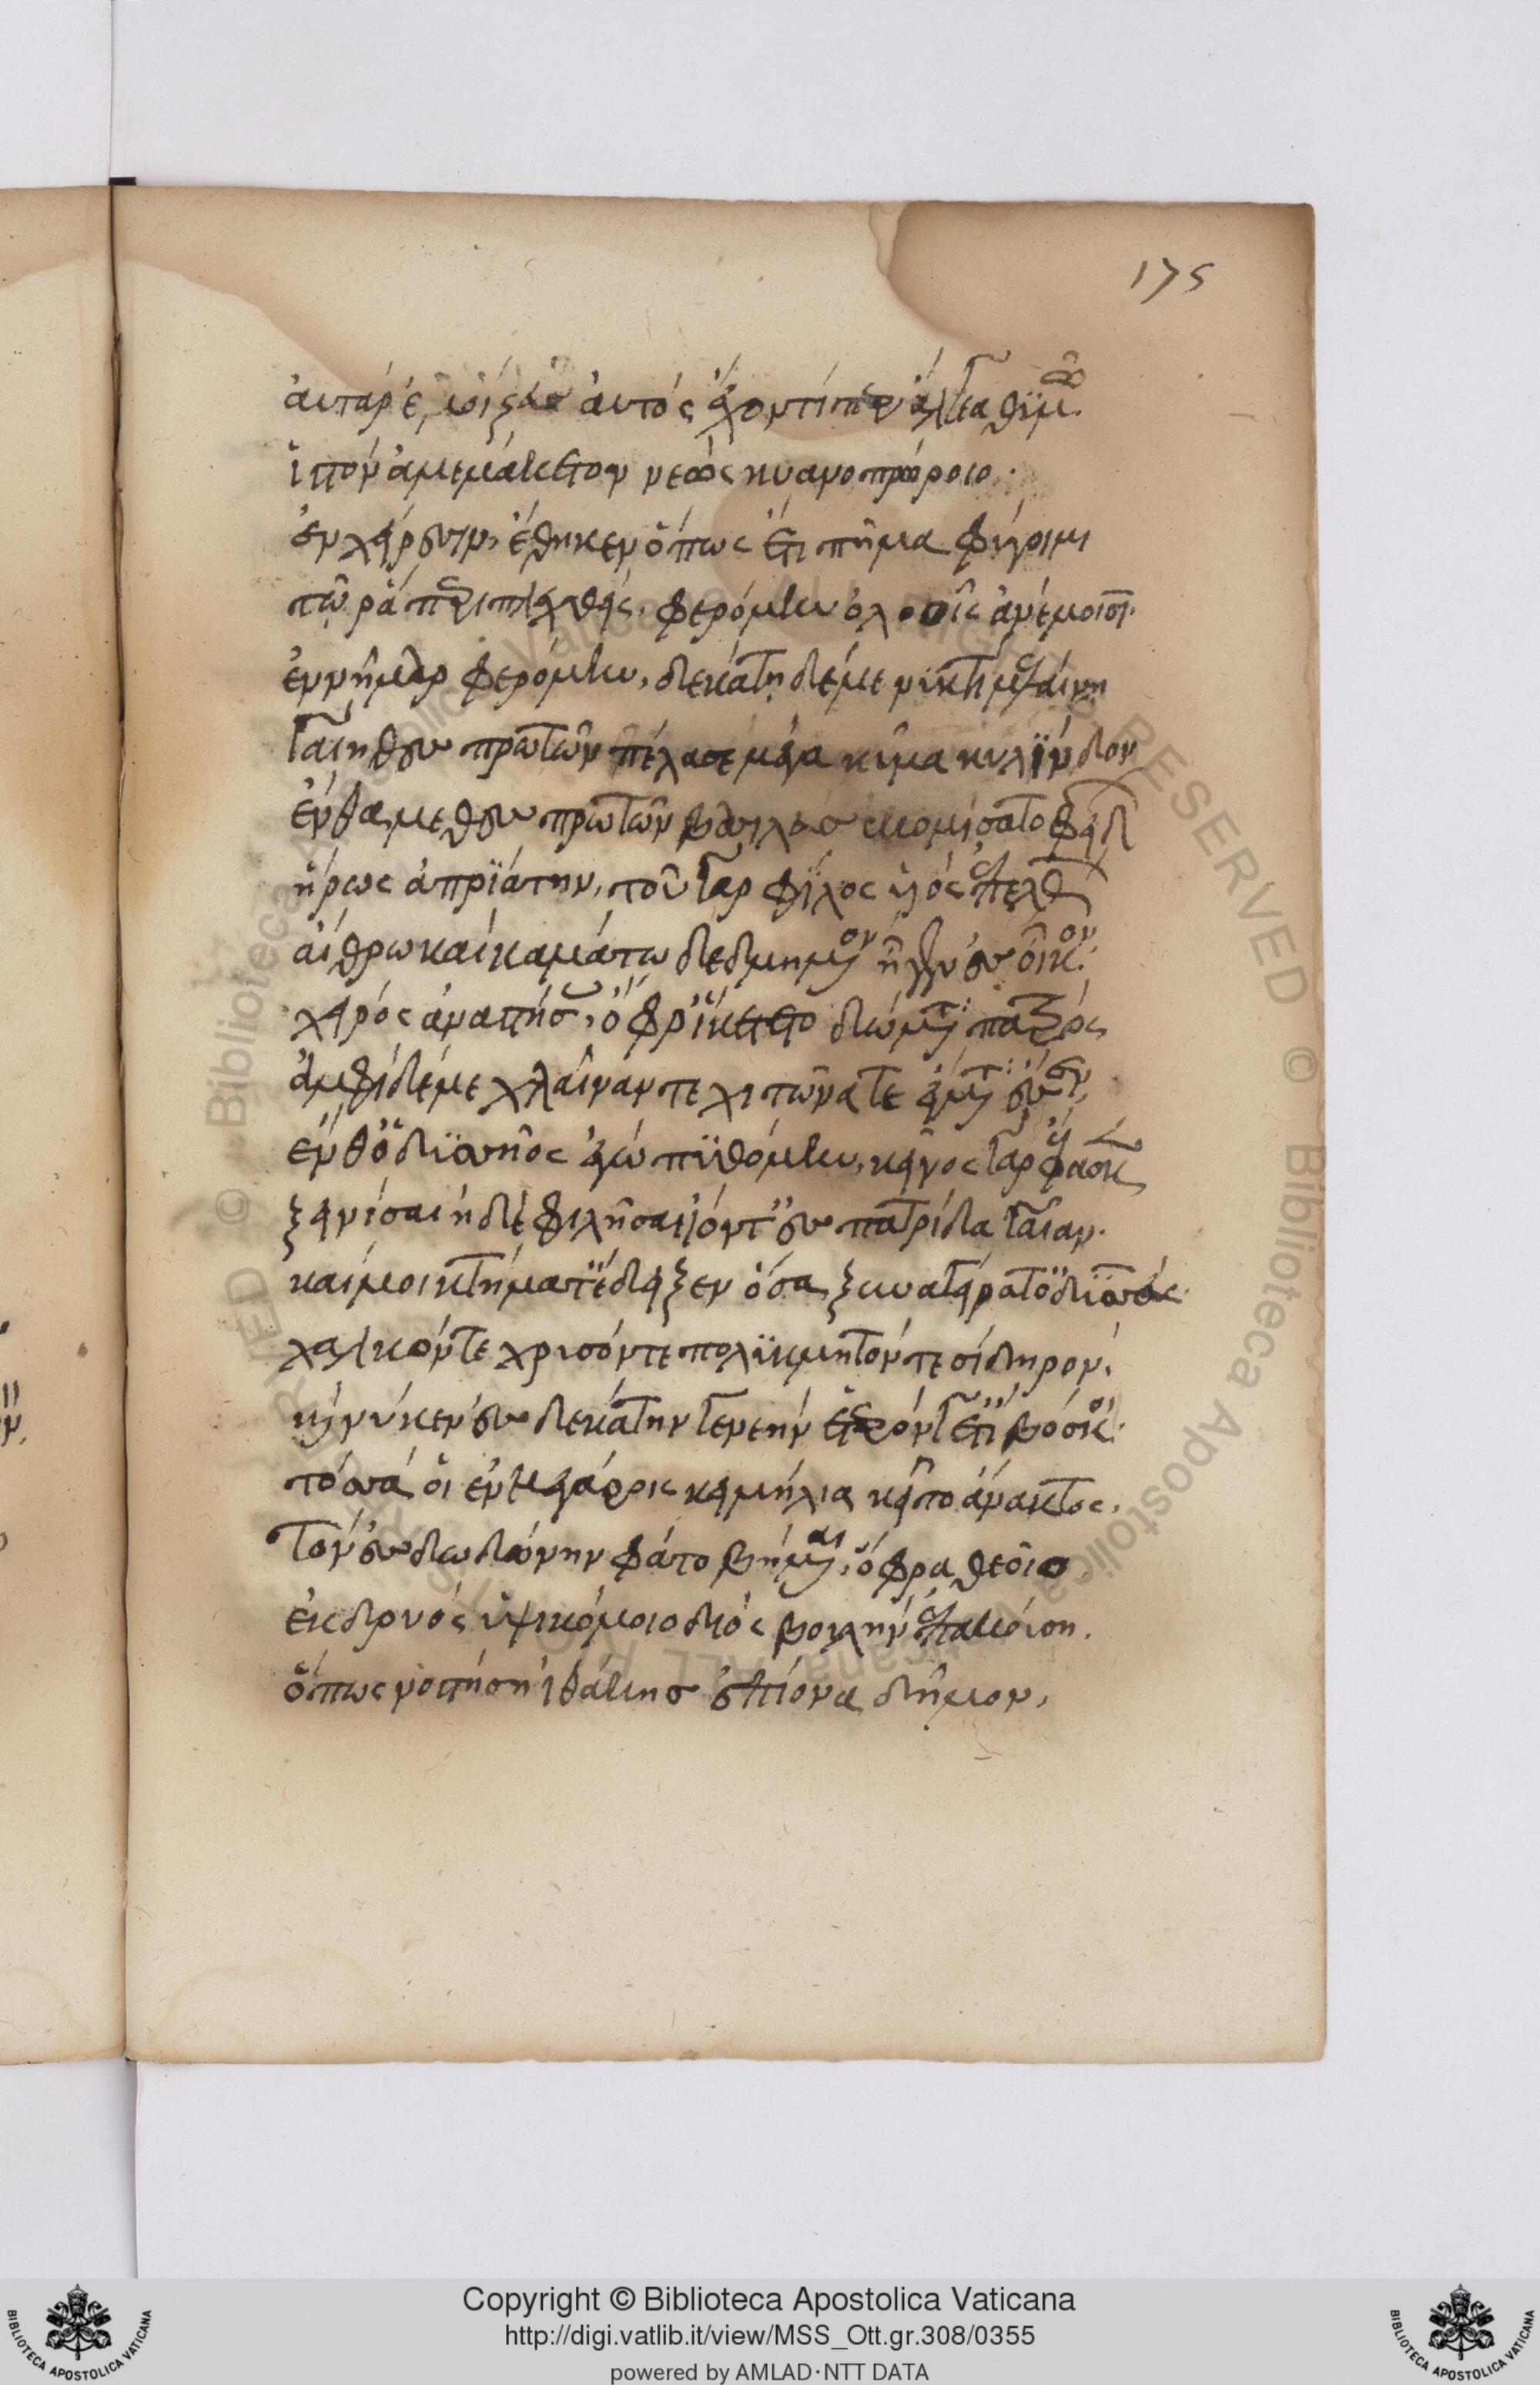 175
ἀυτάρ ἐμοὶ ζεὺς ἀυτός ἔχοντί περ ἄλγεα θυμῶ.
ἱστόν ἀμαιμάκετον νεὸς κυανοπρώροιο.
ἐν χείρεσσιν, ἔθηκεν ὅπως ἔτι πῆμα φύγοιμι
τῶ ρά περιπλεχθείς. φερόμην ὀλοοῖς ἀνέμοισι.
ἐννῆμαρ φερόμην, δεκάτη δέ με νυκτί μελαίνη
γαίη θεσπρωτῶν πέλασε μέγα κῦμα κυλίνδον
ἔνθα με θεσπρωτῶν βασιλεὺς ἐκομίσατο φείδ
ἥρως ἀπριάτην, τοῦ γαρ φίλος υἱός ἐπελθ
αἴθρω καὶ καμάτω δεδμημένον ἦγεν ἐς οἶκον.
χειρός ἀναστήσας, ὄφρ ἵκετο δώματα πατρός
ἀμφὶ δέ με χλαῖναν τε χιτῶνα τε εἵματα ἕσσεν,
ἔνθ ὀδυσσῆος ἐγώ πυθόμην, κεῖνος γαρ ἔφασκε
ξεινίσαι ἠδὲ φιλῆσαι ἰόντ ἐς πατρίδα γαῖαν.
καί μοι κτήματ ἔδειξεν ὅσα ξυναγείρατ ὀδυσσεύς.
χαλκόν τε χρυσόν τε πολύκμητόν τε σίδηρον.
καί νύ κεν ἐς δεκάτην γενεήν ἕτερόν γ ἔτι βόσκοι.
τόσσά οἱ ἐν μεγάροις κειμήλια κεῖτο άνακτος.
Τόν δ ἐς δωδώνην φάτο βήμεναι, ὄφρα θεοῖο
ἐκ δρυός ὑψικόμοιο διός βουλήν ἐπακούση.
ὅπως νοστήση ἰθάκης ἐς πίονα δῆμον,
Copyright © Biblioteca Apostolica Vaticana
http://digi.vatlib.it/view/MSS_Ott.gr.308/0355
powered by AMLAD·NTT DATA